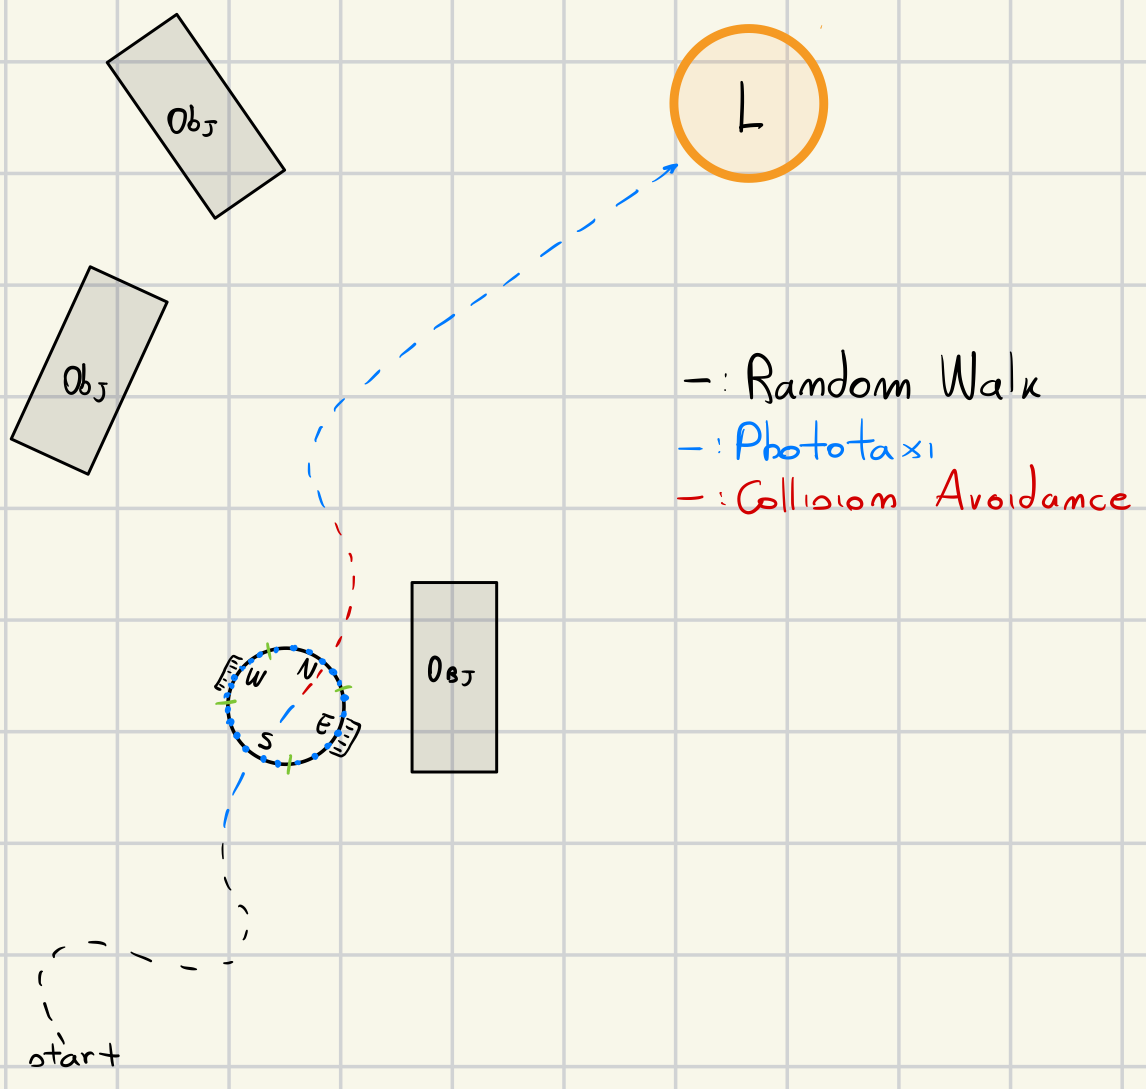 Obj
L
Obj
- : Random Walk
- : Phototaxi
- : Collision Avoidance
OBJ
W N
S E
start